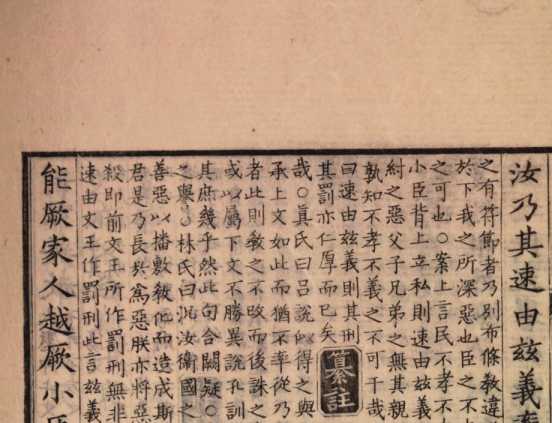 汝乃其速由兹義率
之有符節者乃別布條敎違
於下我之所深惡也臣之不
之可也○案上言民不孝不
小臣背上立私則速由兹義
紂之惡父子兄弟之無其親
孰知不孝不義之不可干哉
曰速由兹義則其刑
其罰亦仁厚而已矣
纂註
哉○眞氏曰吕說似得之與
承上文如此而猶不率從乃
者此則敎之不攺而後誅之
或以屬下文不勝異說孔訓
其庶幾乎然此句合闕疑○
之譽○林氏曰汎汝衞國之
善惡以播敷敎他而造成斯
君是乃長爲惡朕亦將惡
殺即前文王所作罰刑無非
速由文王作罰刑此言兹義
能厥家人越厥小